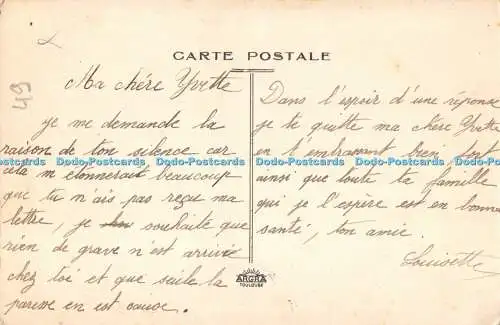 CARTE POSTALE
49
Ma chére Yvette
je me demande la
raison de ton silence car
cela m'étonnerait beaucoup
que tu n'ais pas reçu ma
lettre je souhaite que
rien de grave n'est arrivé
chez toi et que seule la
paresse en est cause.
Dans l'espoir d'une réponse
je te quitte ma chère Yvette
en t'embrassant bien fort
ainsi que toute ta famille
qui je l'espère est en bonne
santé, ton amie.
Louisette
ARGRA
TOULOUSE
Dodo-Postcards Dodo-Postcards Dodo-Postcards Dodo-Postcards Dodo-Postcards